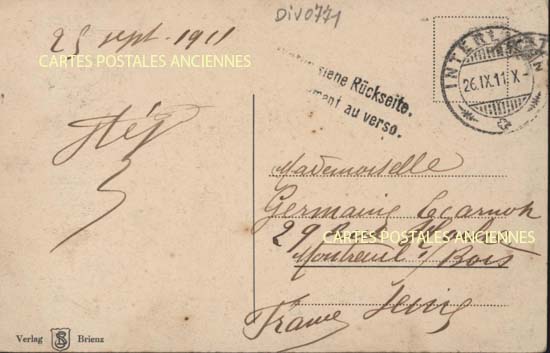 Div0771
25 sept. 1911
CARTES POSTALES ANCIENNES
INTERLAKEN
26.IX.11.X-
siene Rückseite.
ment au verso.
Mademoiselle
Germaine
29
CARTES POSTALES ANCIENNES
Montreuil s/ Bois
Seine
France
Verlag S Brienz